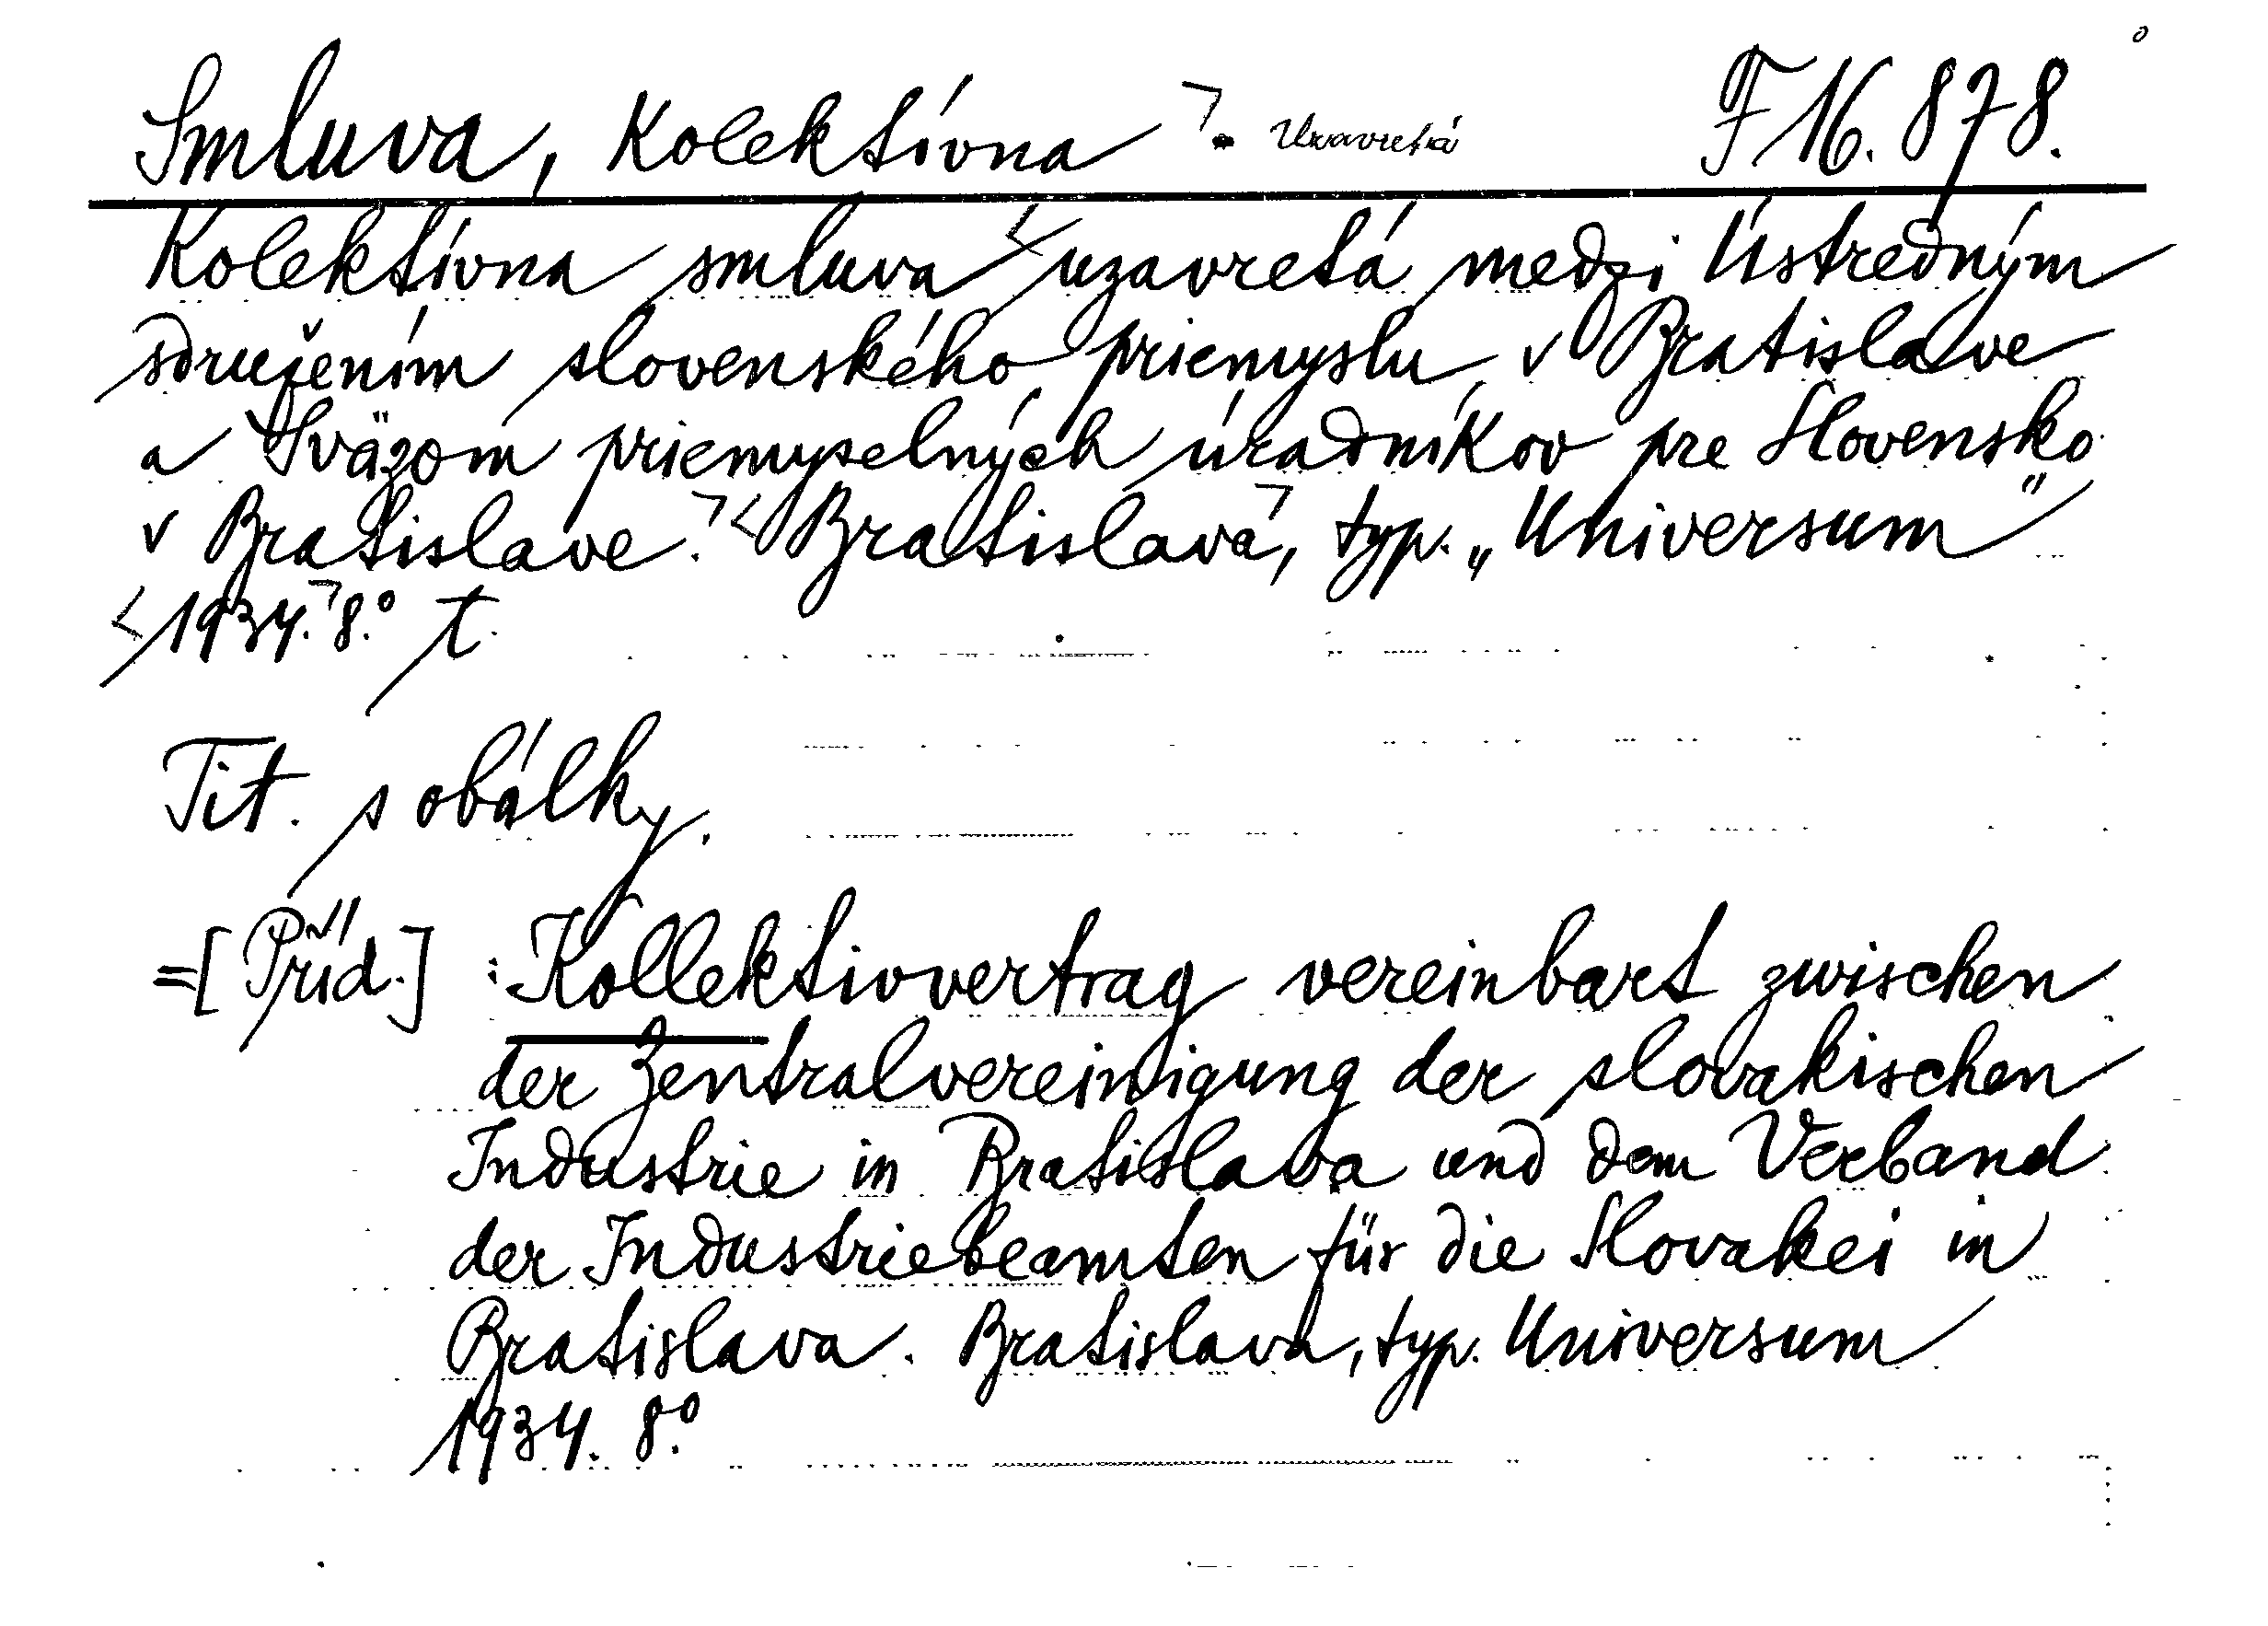 Smluva, Kolektívna ⌝. Uzavretá F 16.878.
Kolektívna smluva <uzavretá medzi Ústredným
sdružením slovenského priemyslu v Bratislave
a Sväzom priemyselných úradníkov pre Slovensko
v Bratislave.⌝ <Bratislava⌝, typ. „Universum"
<1934.⌝ 8.° t.
Tit. s obálky.
=[Příd.] : Kollektivvertrag vereinbart zwischen
der Zentralvereinigung der slovakischen
Industrie in Bratislava und dem Verband
der Industriebeamten für die Slovakei in
Bratislava. Bratislava, typ. Universum
1934. 8.°